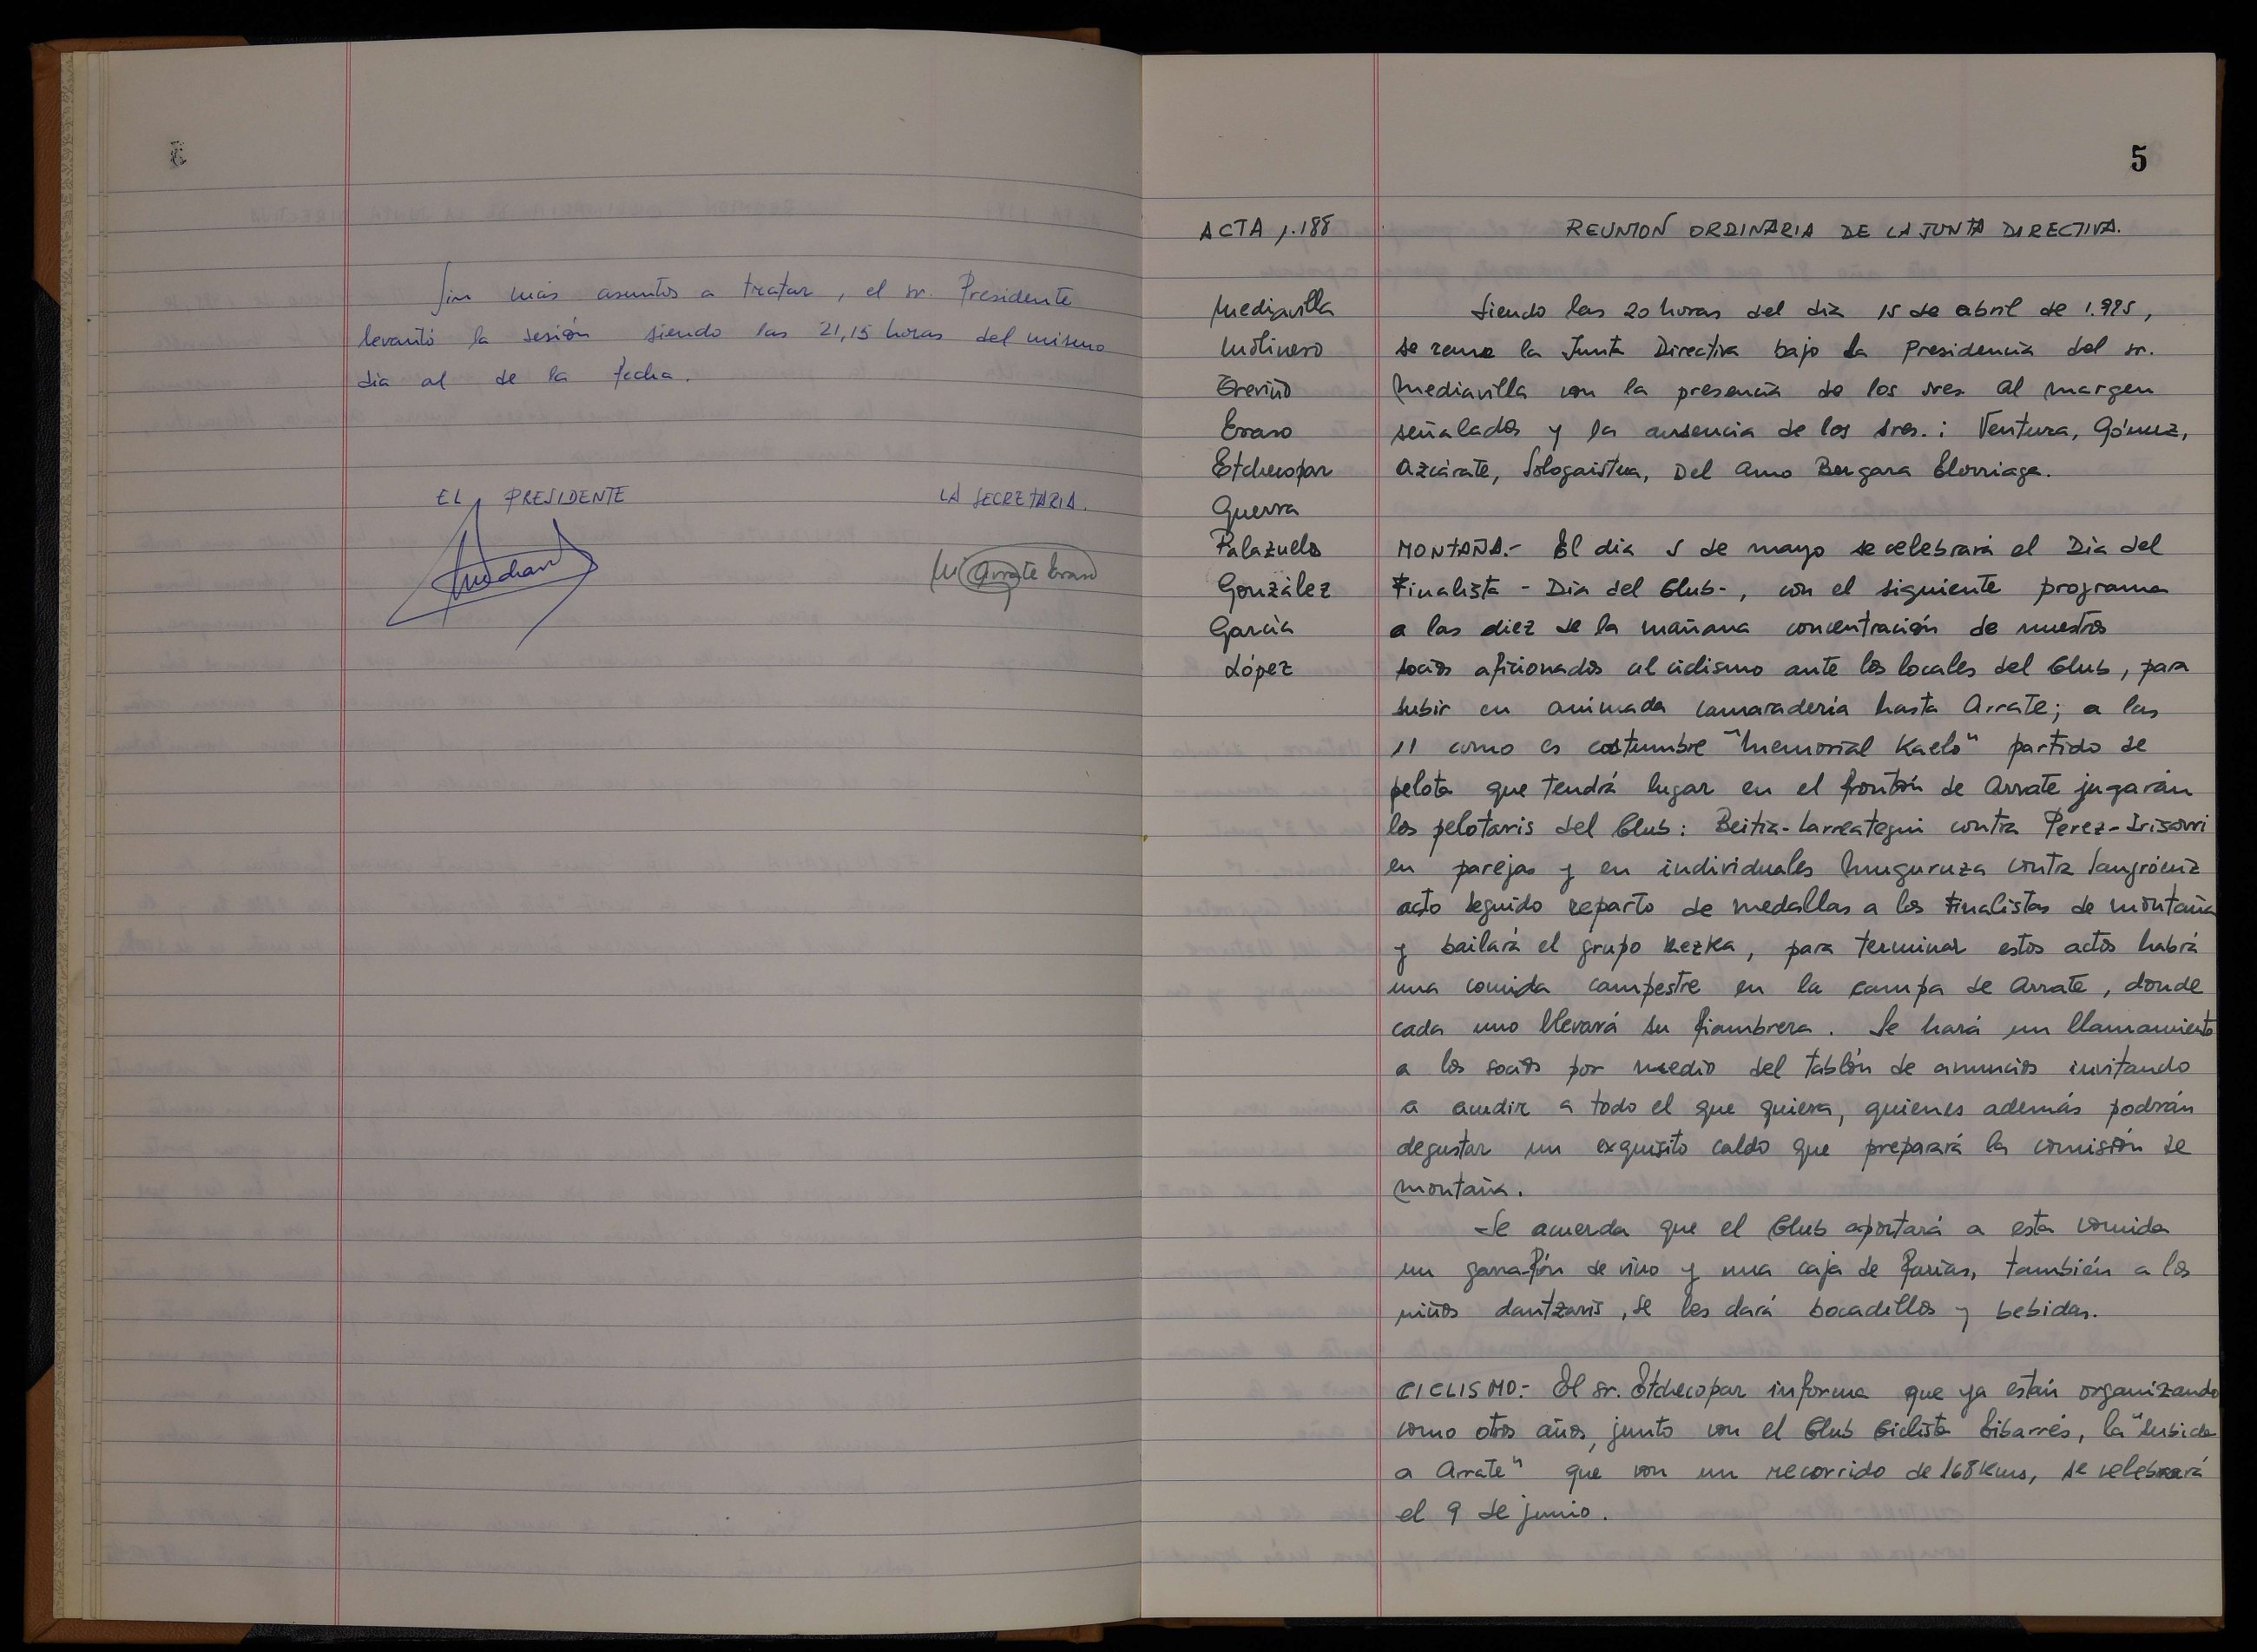 Sin más asuntos a tratar, el sr. Presidente
levantó la sesión siendo las 21,15 horas del mismo
día al de la fecha.
EL PRESIDENTE
LA SECRETARIA.
Mª Arrate Eraso
5
ACTA 1.188
REUNION ORDINARIA DE LA JUNTA DIRECTIVA.
Mediavilla
Molinero
Treviño
Eraso
Etchecopar
Guerra
Palazuelo
González
García
López
Siendo las 20 horas del día 15 de abril de 1.985,
se reune la Junta Directiva bajo la Presidencia del sr.
Mediavilla con la presencia de los sres al margen
señalados y la ausencia de los sres.: Ventura, Gómez,
Azcárate, Sologaistua, Del Amo Bergara Elorriaga.
MONTAÑA.- El día 5 de mayo se celebrará el Día del
Finalista - Día del Club-, con el siguiente programa
a las diez de la mañana concentración de nuestros
socios aficionados al ciclismo ante los locales del Club, para
subir en animada camaradería hasta Arrate; a las
11 como es costumbre "Memorial Kaelo" partido de
pelota que tendrá lugar en el frontón de Arrate jugarán
los pelotaris del Club: Beitia-Larreategui contra Perez-Irisarri
en parejas y en individuales Muguruza contra Sangróniz
acto seguido reparto de medallas a los Finalistas de montaña
y bailará el grupo Kezka, para terminar estos actos habrá
una comida campestre en la campa de Arrate, donde
cada uno llevará su fiambrera. Se hará un llamamiento
a los socios por medio del tablón de anuncios invitando
a acudir a todo el que quiera, quienes además podrán
degustar un exquisito caldo que preparará la comisión de
montaña.
Se acuerda que el Club aportará a esta comida
un garrafón de vino y una caja de farias, también a los
niños dantzaris, se les dará bocadillos y bebidas.
CICLISMO.- El sr. Etchecopar informa que ya están organizando
como otros años, junto con el Club Ciclista Eibarrés, la "Subida
a Arrate" que con un recorrido de 168 Kms, se celebrará
el 9 de junio.